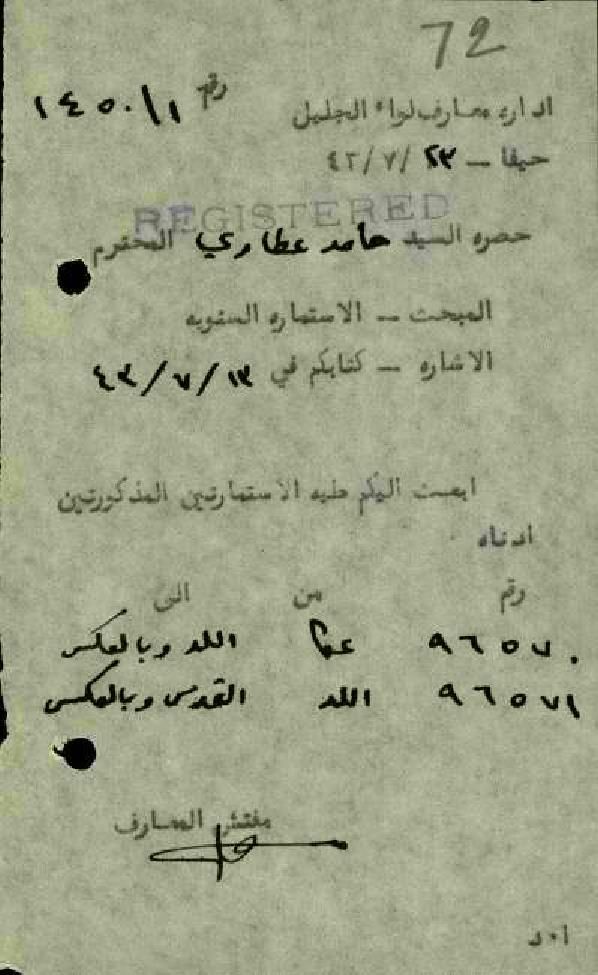 72
اداره معارف لواء الجليل رقم ١٤٥٠/١
حيفا – ٢٣/٧/٤٢
REGISTERED
حضره السيد حامد عطاري المحترم
المبحث – الاستماره السنويه
الاشاره – كتابكم في ١٣/٧/٤٣
ابعث اليكم طيه الاستمارتين المذكورتين
ادناه
رقم من الى
٩٦٥٧٠ عكا اللد وبالعكس
٩٦٥٧١ اللد القدس وبالعكس
مفتش المعارف